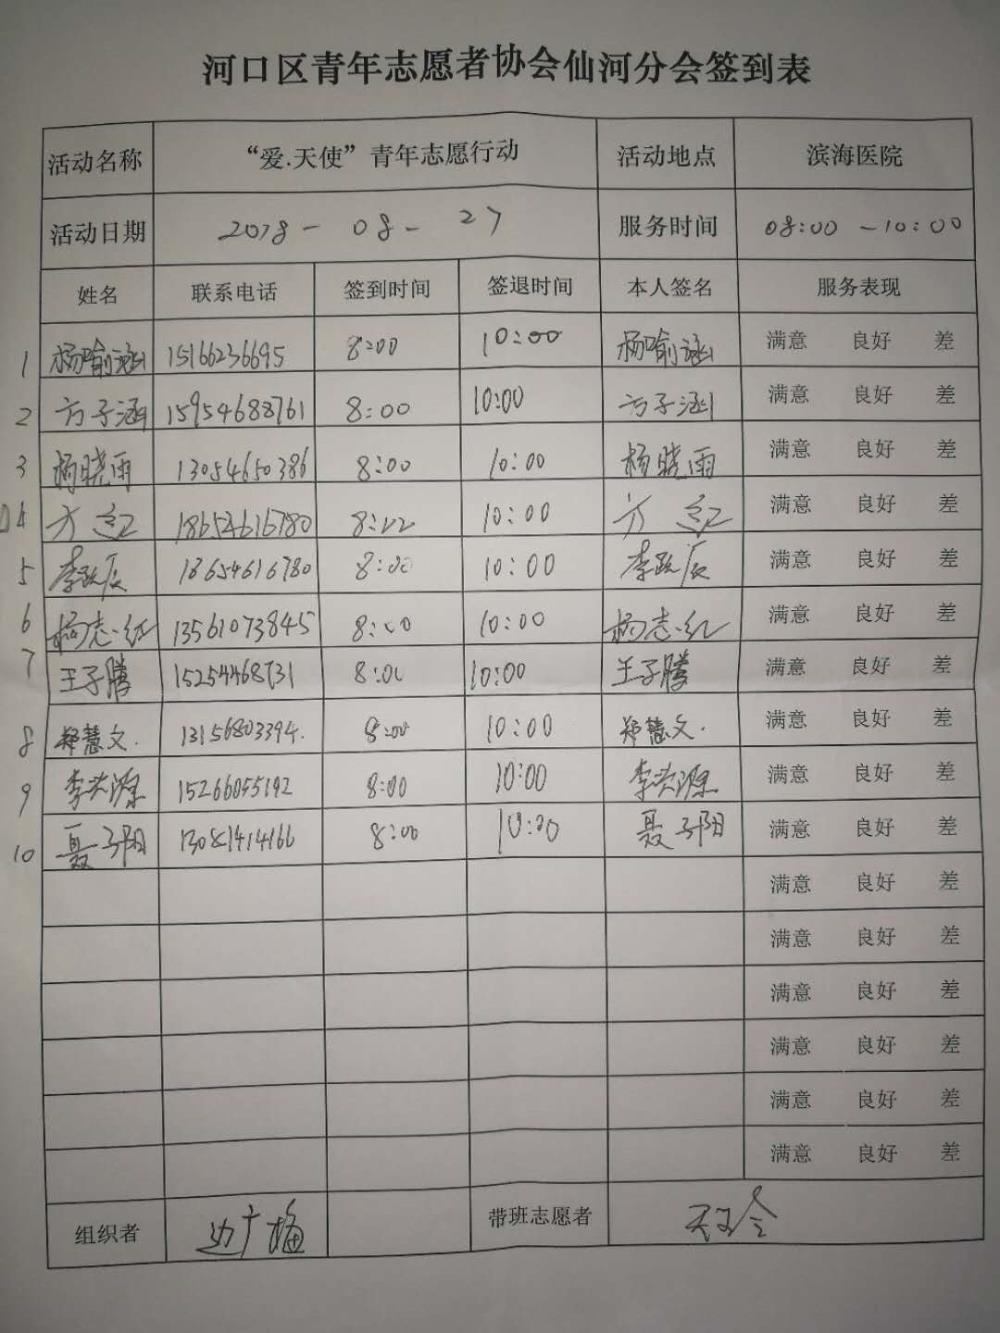 河口区青年志愿者协会仙河分会签到表
活动名称 “爱.天使”青年志愿行动 活动地点 滨海医院
活动日期 2018-08-27 服务时间 08:00-10:00
姓名 联系电话 签到时间 签退时间 本人签名 服务表现
1 杨喻涵 15166236695 8:00 10:00 杨喻涵 满意 良好 差
2 方子涵 15954688761 8:00 10:00 方子涵 满意 良好 差
3 杨晓雨 13054650386 8:00 10:00 杨晓雨 满意 良好 差
4 方红 18654616780 8:00 10:00 方红 满意 良好 差
5 李政辰 18654616780 8:00 10:00 李政辰 满意 良好 差
6 杨志红 13561073845 8:00 10:00 杨志红 满意 良好 差
7 王子腾 15254468731 8:00 10:00 王子腾 满意 良好 差
8 郑慧文. 13156803394. 8:00 10:00 郑慧文. 满意 良好 差
9 李兴源 15266055192 8:00 10:00 李兴源 满意 良好 差
10 聂子阳 8:00 10:00 聂子阳 满意 良好 差
满意 良好 差
满意 良好 差
满意 良好 差
满意 良好 差
满意 良好 差
满意 良好 差
组织者 边广梅 带班志愿者